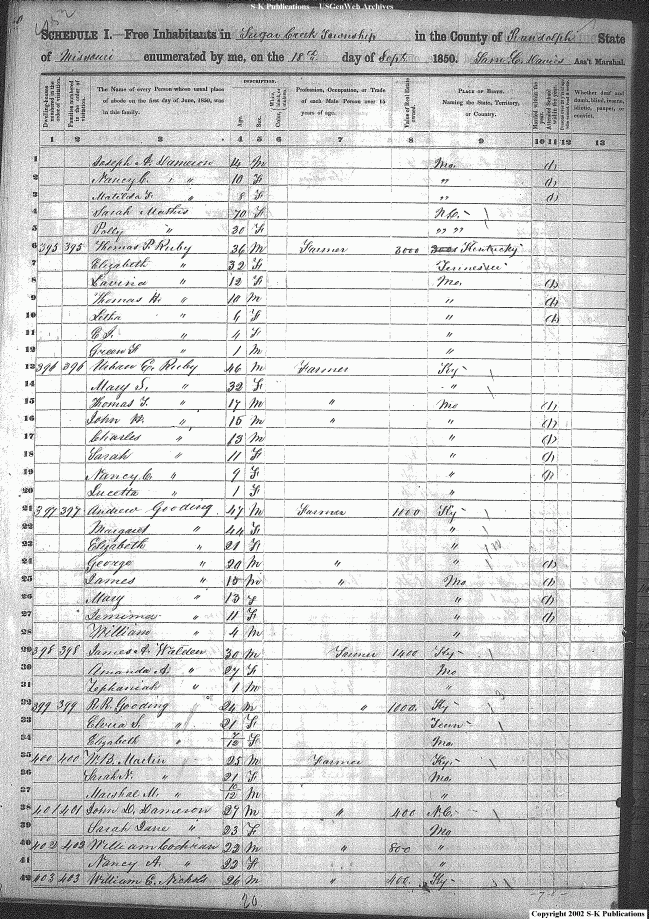 S-K Publications - USGenWeb Archives
SCHEDULE I.—Free Inhabitants in Sugar Creek Township in the County of Randolph State
of Missouri enumerated by me, on the 18th day of Sept 1850. Saml C. Davis Ass't Marshal.
Dwelling-houses numbered in the order of visitation. Families numbered in the order of visitation. The Name of every Person whose usual place of abode on the first day of June, 1850, was in this family. DESCRIPTION. Age. Sex. Profession, Occupation, or Trade of each Male Person over 15 years of age. Value of Real Estate owned. PLACE OF BIRTH. Naming the State, Territory, or Country. Married within the year. Attended School within the year. Whether deaf and dumb, blind, insane, idiotic, pauper, or convict.
1 2 3 4 5 6 7 8 9 10 11 12 13
1 Joseph A. Dameron 14 M Mo. (1)
2 Nancy C. " " 10 F " (1)
3 Matilda F. " 8 F " (1)
4 Sarah Mathis 70 F N.C. 1
5 Polly " 30 F " "
6 395 395 Thomas P. Ruby 36 M Farmer 3000 Kentucky
7 Elizabeth " 32 F Tennessee
8 Lavina " 12 F Mo. (1)
9 Thomas H. " 10 M " (1)
10 Letha " 6 F " (1)
11 E. J. " 4 F "
12 Green F. " 1 M "
13 396 396 Urban E. Ruby 46 M Farmer Ky
14 Mary S. " 32 F "
15 Thomas F. " 17 M " Mo (1)
16 John W. " 15 M " " (1)
17 Charles " 13 M " (1)
18 Sarah " 11 F " (1)
19 Nancy C. " 9 F " (1)
20 Lucetta " 1 F "
21 397 397 Andrew Gooding 47 M Farmer 1000 Ky
22 Margaret " 44 F "
23 Elizabeth " 21 F "
24 George " 20 M " " (1)
25 James " 15 M " Mo (1)
26 Mary " 13 F " (1)
27 Jemima " 11 F " (1)
28 William " 4 M "
29 398 398 James A. Walden 30 M Farmer 1400 Ky
30 Amanda A. " 27 F Mo
31 Zephaniah " 1 M "
32 399 399 R. R. Gooding 24 M " 1000. Ky
33 Elvira S. " 21 F Tenn
34 Elizabeth " 7/12 F Mo.
35 400 400 W. B. Martin 25 M Farmer Ky.
36 Sarah N. " 21 F Mo.
37 Marshal M. " 10/12 M "
38 401 401 John D. Dameron 27 M " 400 N.C.
39 Sarah Jane " 23 F Mo
40 402 402 William Cochran 22 M " 800 "
41 Nancy A. " 22 F "
42 403 403 William C. Nichols 26 M " 400 Ky
20
Copyright 2002 S-K Publications